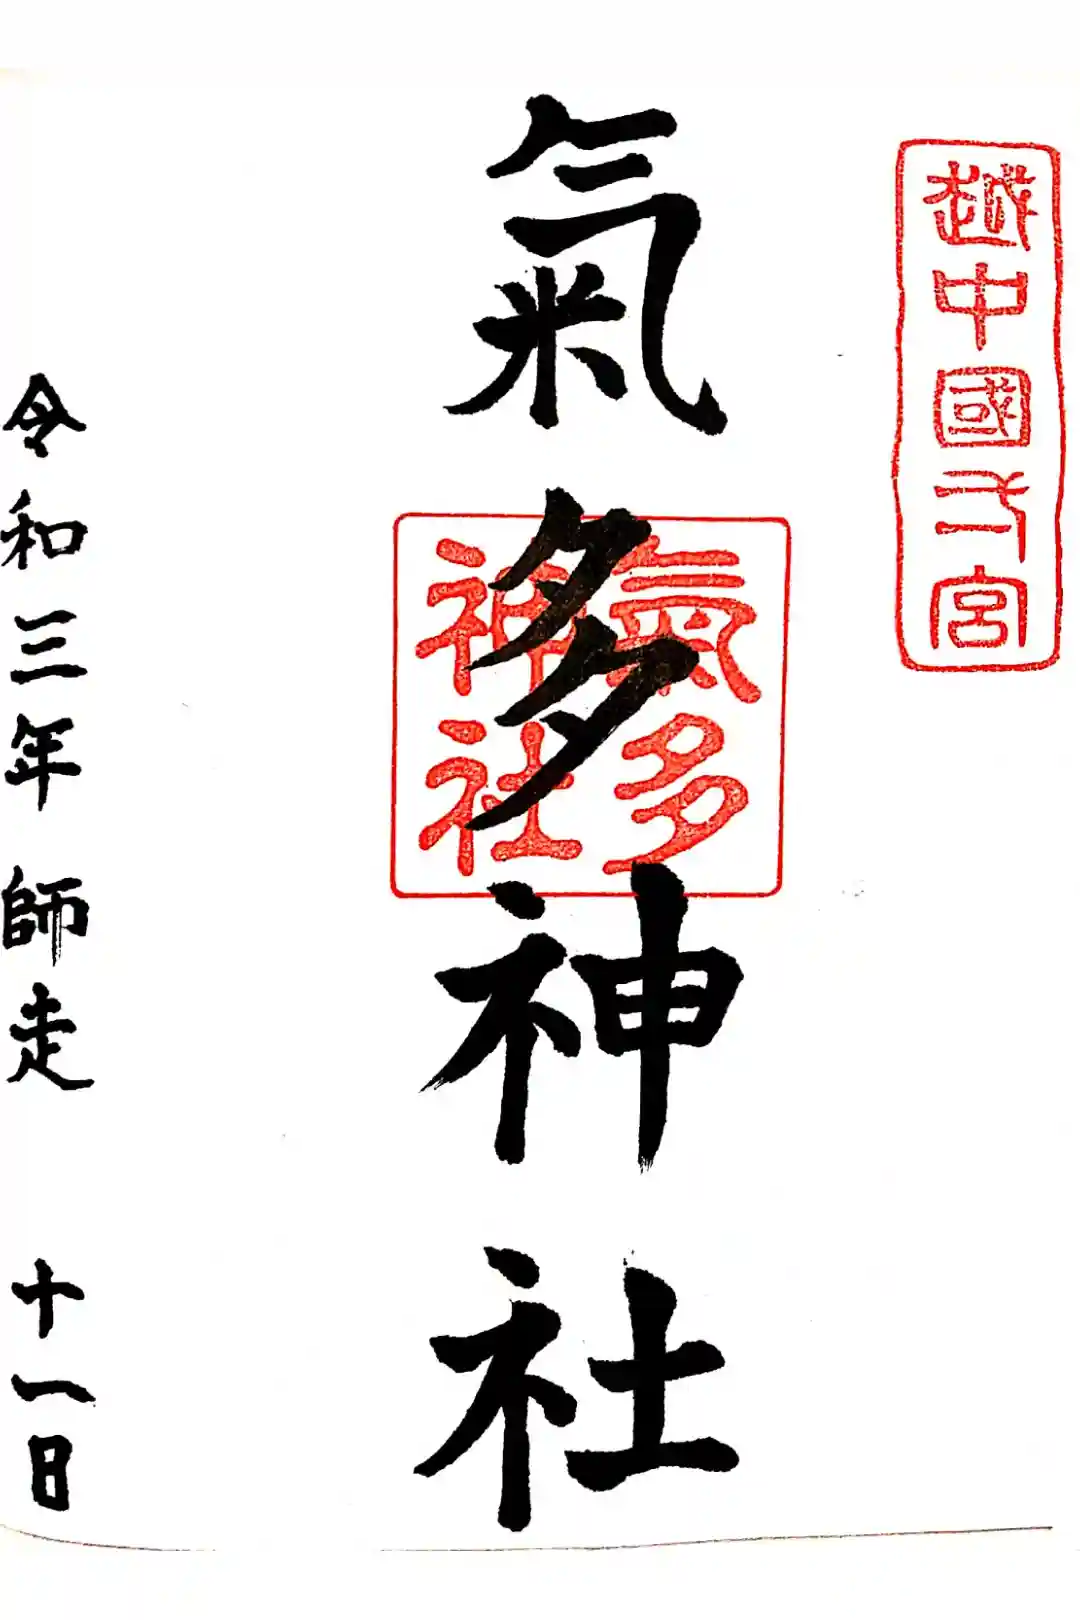 越中國弌宮
氣多神社
氣多
神社
令和三年 師走 十一日